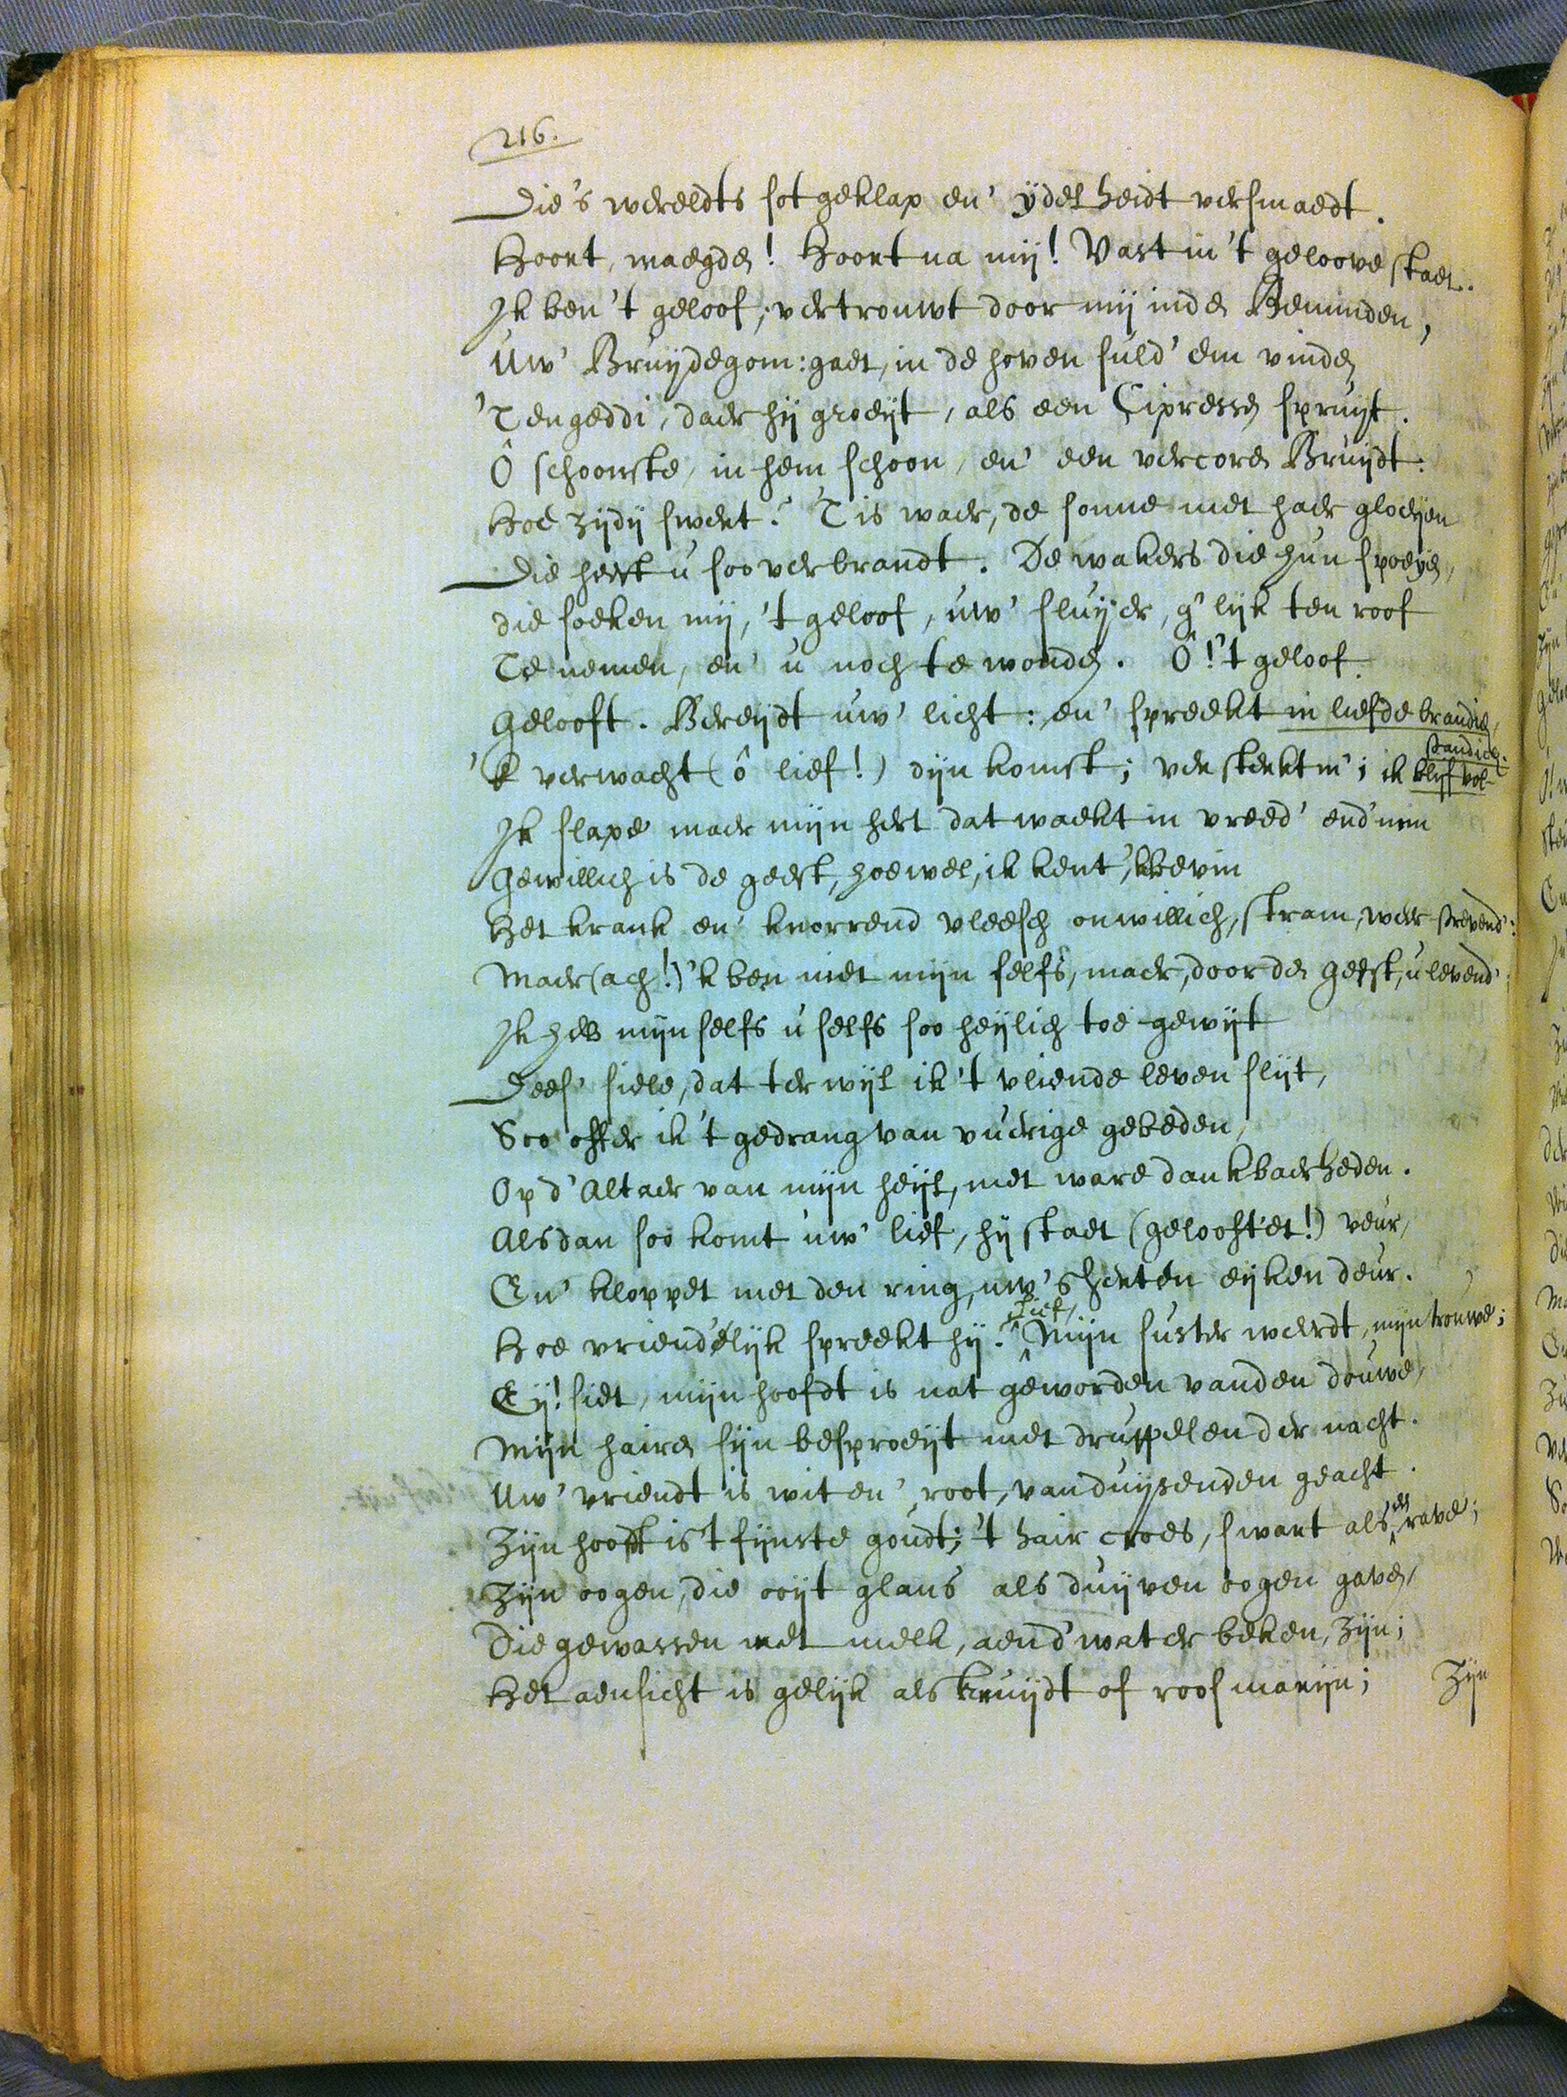 216.
Die's wereldts sot geklap en' ijdelheidt versmaedt.
Hoort, maegden! Hoort na mij! Vast in 't geloove staet.
Ik ben 't geloof; vertrouwt door mij inden Beminden,
Uw' Bruijdegom: gaet, in de hoven suld' em vinden
'T engeddi, daer hij groeijt, als een Cipressen spruijt.
Ô schoonste, in hem schoon, en' een vercoren Bruijdt:
Hoe zijdij swert? 'T is waer, de sonne met haer gloeijen
Die heeft u soo verbrandt. De wakers die hun spoeijen,
die soeken mij, 't geloof, uw' sluijer, g'lijk ten roof
Te nemen, en' u noch te wonden. Ô! 't geloof
Gelooft. Bereijdt uw' licht: en' spreekt in liefde brandich,
'k verwacht (ô lief!) dijn komst; versterkt m'; ik blijf vol-
standich.
Ik slape maer mijn hert dat waekt in vreed' end' min
Gewillich is de geest, hoewel, ik kent, 'k bevin
Het krank en' knorrend vleesch onwillich, stram, weer strevend':
Maer (ach!) 'k ben niet mijn selfs, maer, door den geest, u levend':
Ik heb mijn selfs u selfs soo heijlich toe gewijt
Dees' siele, dat terwijl ik 't vliende leven slijt,
Soo offer ik 't gedrang van vuerige gebeden,
Op d' Altaer van mijn heijl, met ware dankbaerheden.
Alsdan soo komt uw' lief, hij staet (gelooft'et!) veur,
En' kloppet met den ring, uw's herten eijken deur.
Hoe vriend'lijk spreekt hij. Lief, Mijn suster weerdt, mijn trouwe;
Eij! siet, mijn hoofdt is nat geworden vanden douwe,
Mijn hairen sijn besproeijt met druppelen der nacht.
Uw' vriendt is wit en' root, van duijsenden geacht.
Zijn hooft is 't fijnste goudt; 't hair croes, swart als een rave;
Zijn oogen, die ooijt glans als duijven oogen gaven,
Die gewassen met melk, aend' water beken, zijn;
Het aensicht is gelijk als kruijdt of roosmarijn;
Zijn